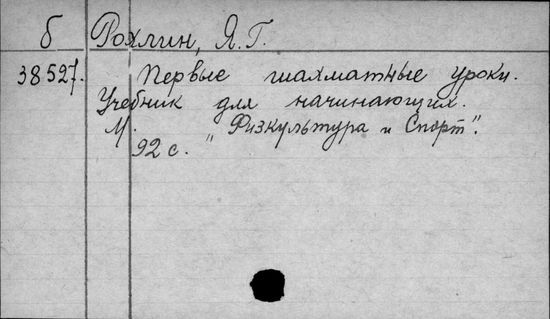 б Рохлин, Я.Г.
38527. Первые шахматные уроки.
Учебник для начинающих.
М. "Физкультура и Спорт".
92 с.